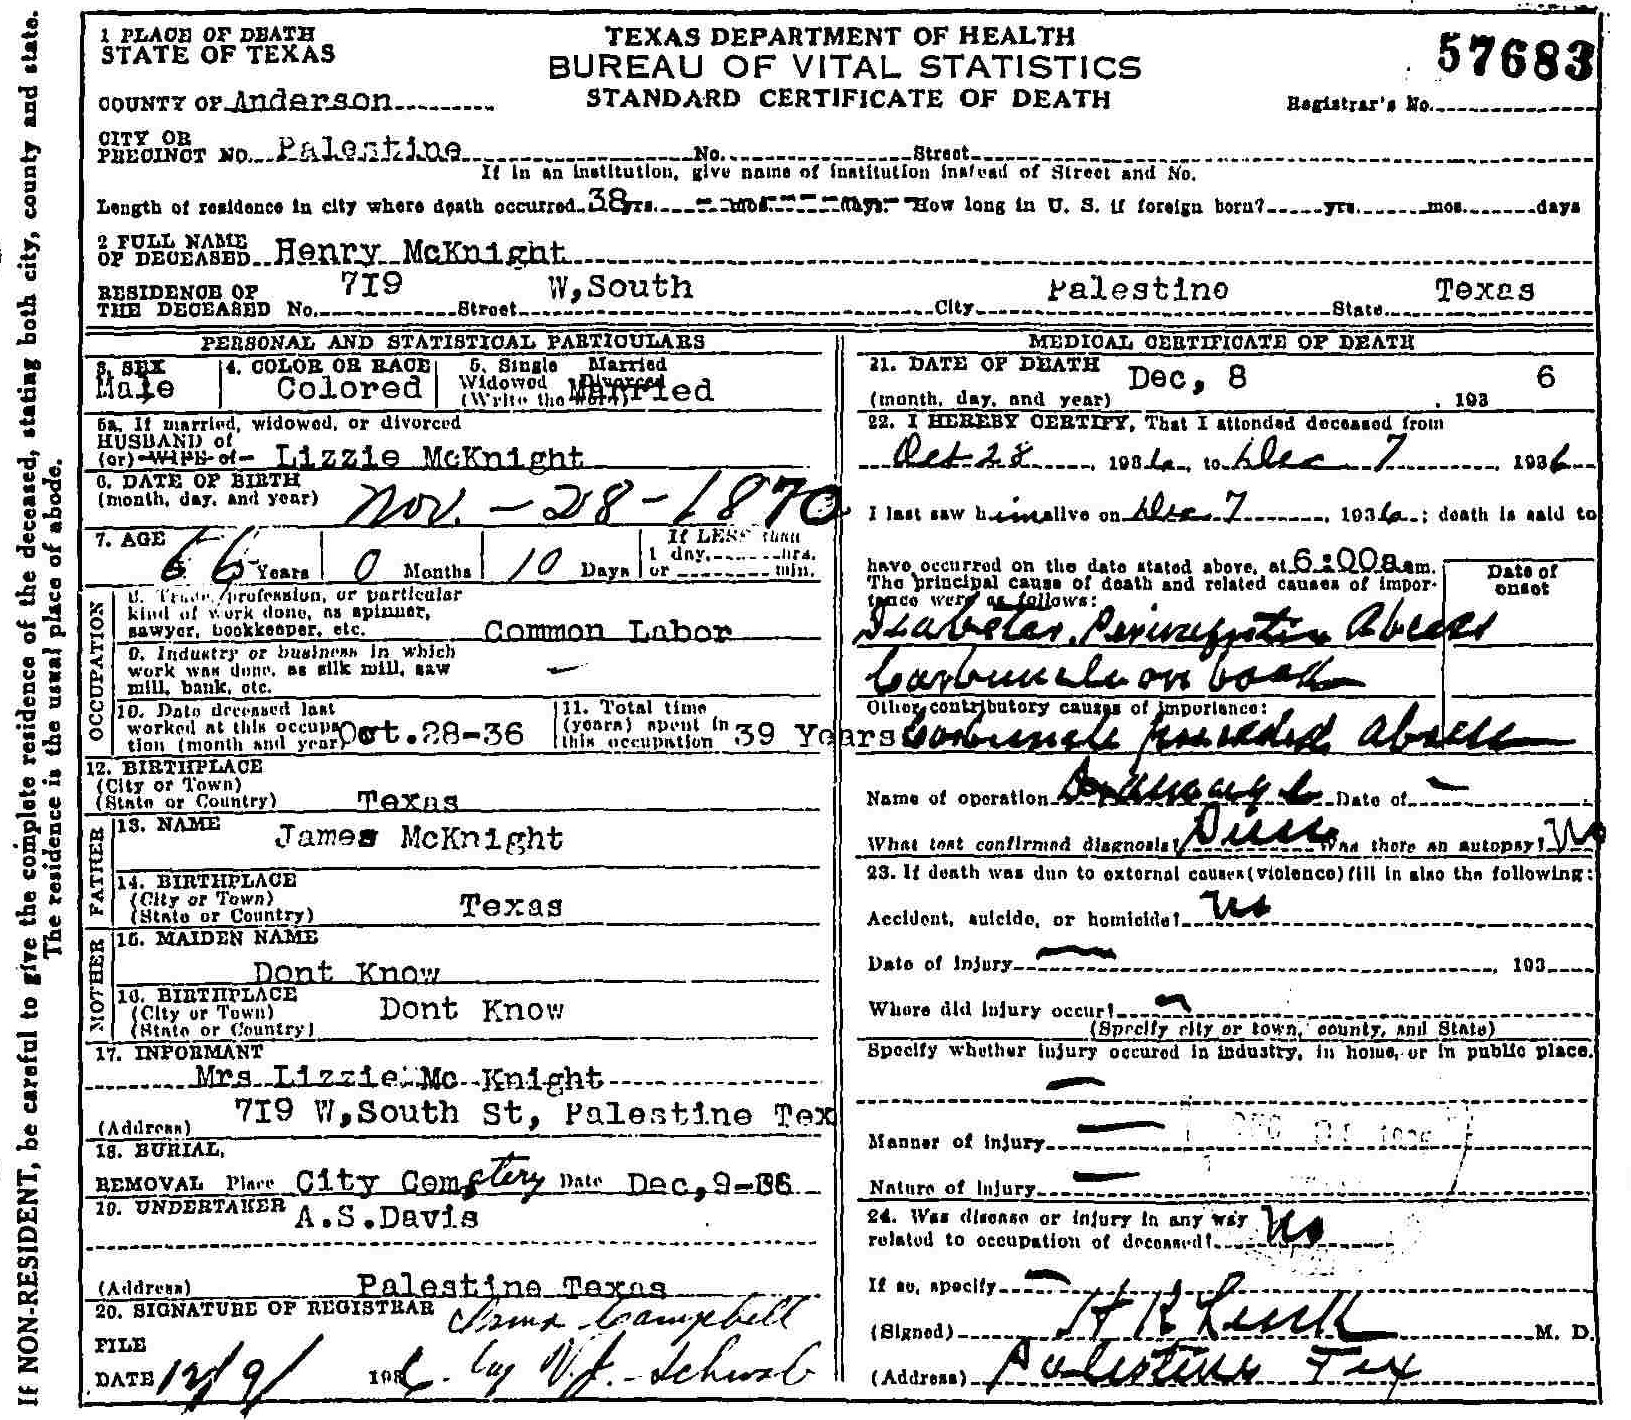 If NON-RESIDENT, be careful to give the complete residence of the deceased, stating both city, county and state.
The residence is the usual place of abode.
1 PLACE OF DEATH
STATE OF TEXAS
COUNTY OF Anderson
TEXAS DEPARTMENT OF HEALTH
BUREAU OF VITAL STATISTICS
STANDARD CERTIFICATE OF DEATH
57683
Registrar's No.
CITY OR
PRECINCT NO. Palestine No. Street
If in an institution, give name of institution instead of Street and No.
Length of residence in city where death occurred 38 yrs. mos. days. How long in U. S. if foreign born? yrs. mos. days
2 FULL NAME
OF DECEASED Henry McKnight
RESIDENCE OF
THE DECEASED No. 7I9 Street W,South City Palestine State Texas
PERSONAL AND STATISTICAL PARTICULARS
3. SEX
Male
4. COLOR OR RACE
Colored
5. Single Married
Widowed Divorced
(Write the word) Married
5a. If married, widowed, or divorced
HUSBAND of
(or) WIFE of Lizzie McKnight
6. DATE OF BIRTH
(month, day, and year) Nov. - 28 - 1870
7. AGE 66 Years 0 Months 10 Days
If LESS than
1 day, hrs.
or min.
OCCUPATION
8. Trade, profession, or particular
kind of work done, as spinner,
sawyer, bookkeeper, etc. Common Labor
9. Industry or business in which
work was done, as silk mill, saw
mill, bank, etc.
10. Date deceased last
worked at this occupa-
tion (month and year) Oct.28-36
11. Total time
(years) spent in
this occupation 39 Years
12. BIRTHPLACE
(City or Town)
(State or Country) Texas
FATHER
13. NAME James McKnight
14. BIRTHPLACE
(City or Town)
(State or Country) Texas
MOTHER
15. MAIDEN NAME
Dont Know
16. BIRTHPLACE
(City or Town) Dont Know
(State or Country)
17. INFORMANT
Mrs Lizzie Mc Knight
(Address) 7I9 W,South St, Palestine Tex
18. BURIAL,
REMOVAL Place City Cemetery Date Dec,9-36
19. UNDERTAKER A.S.Davis
(Address) Palestine Texas
20. SIGNATURE OF REGISTRAR Campbell
FILE
DATE 12/9/ 1936 by W.J. Schwab
MEDICAL CERTIFICATE OF DEATH
21. DATE OF DEATH
(month, day, and year) Dec, 8 , 1936
22. I HEREBY CERTIFY, That I attended deceased from
Oct 28, 1936, to Dec 7, 1936
I last saw him alive on Dec 7, 1936; death is said to
have occurred on the date stated above, at 6:00a m.
The principal cause of death and related causes of impor-
tance were as follows:
Date of
onset
Diabetes, Abcess
Carbuncle on back
Other contributory causes of importance:
Carbuncle preceded Abcess
Name of operation Drainage Date of -
What test confirmed diagnosis? Was there an autopsy? No
23. If death was due to external causes (violence) fill in also the following:
Accident, suicide, or homicide? No
Date of injury , 193
Where did injury occur?
(Specify city or town, county, and State)
Specify whether injury occured in industry, in home, or in public place.
Manner of injury
Nature of injury
24. Was disease or injury in any way
related to occupation of deceased? No
If so, specify
(Signed) H R Link M. D.
(Address) Palestine Tex